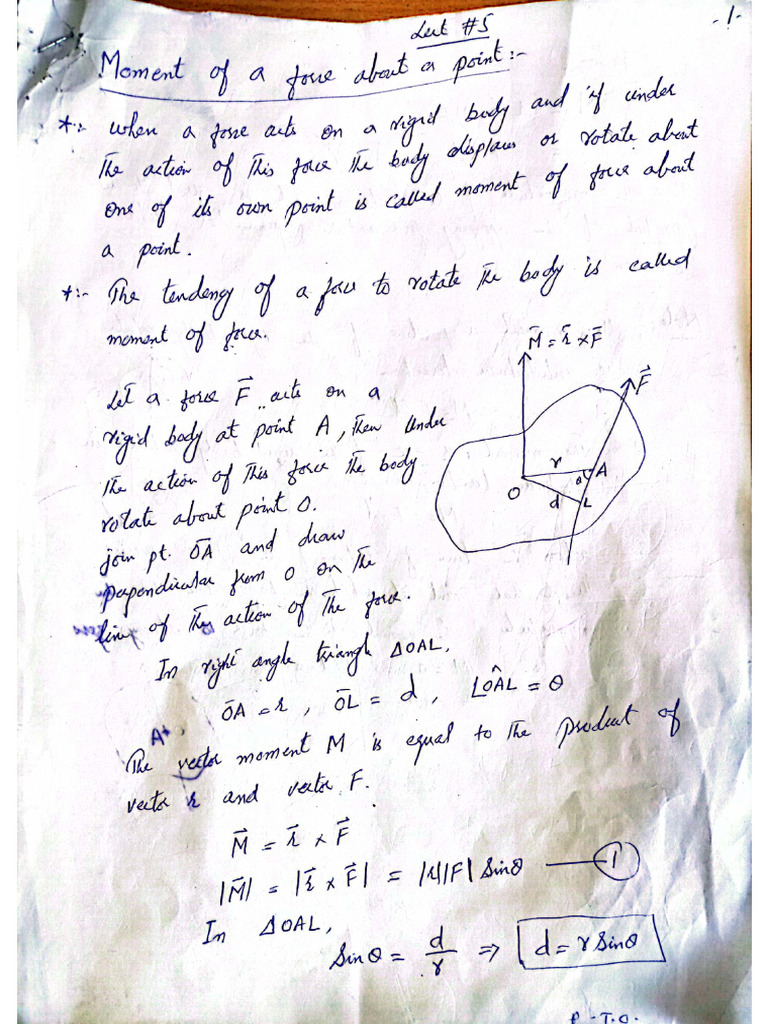 Lect #5
-1-
Moment of a force about a point:-
*:- when a force acts on a rigid body and if under
the action of this force the body displaces or rotate about
one of its own point is called moment of force about
a point.
*:- The tendency of a force to rotate the body is called
moment of force.
M̄ = r̄ × F̄
Let a force F⃗ acts on a
rigid body at point A, then under
the action of this force the body
rotate about point O.
F⃗
r
A
θ
O
d
L
join pt. OA and draw
perpendicular from O on the
line of the action of the force.
In right angle triangle ΔOAL,
ŌA = r, ŌL = d, ∠OÂL = θ
The vector moment M is equal to the product of
vector r and vector F.
M⃗ = r⃗ × F⃗
|M⃗| = |r⃗ × F⃗| = |r||F| Sinθ — 1
In ΔOAL,
Sinθ = d/r ⇒ d = r Sinθ
P.T.O.